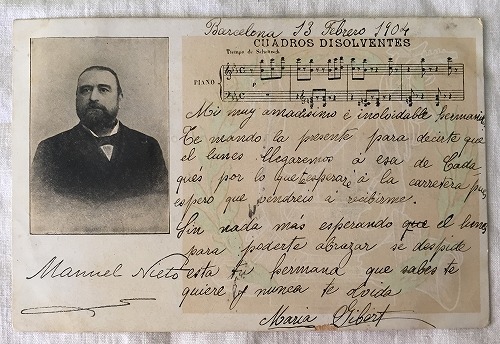 Barcelona 13 Febrero 1904
CUADROS DISOLVENTES
Tiempo de Schotisch
PIANO
p
Mi muy amadisimo é inolvidable hermano:
Te mando la presente para decirte que
el lunes llegaremos á esa de Cada-
qués por lo que te espiraré á la carretera pues
espero que vendréis á recibirme.
Sin nada más esperando que el lunes
para poderte abrazar se despide
esta tu hermana que sabes te
quiere y nunca te olvida
Maria Gibert
Manuel Nieto